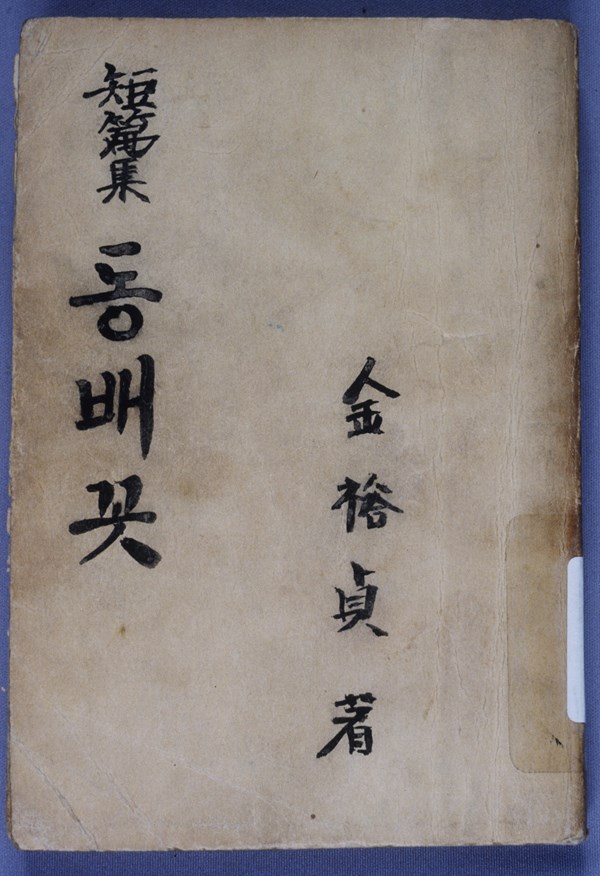 金裕貞 著
短篇集 동배꼿